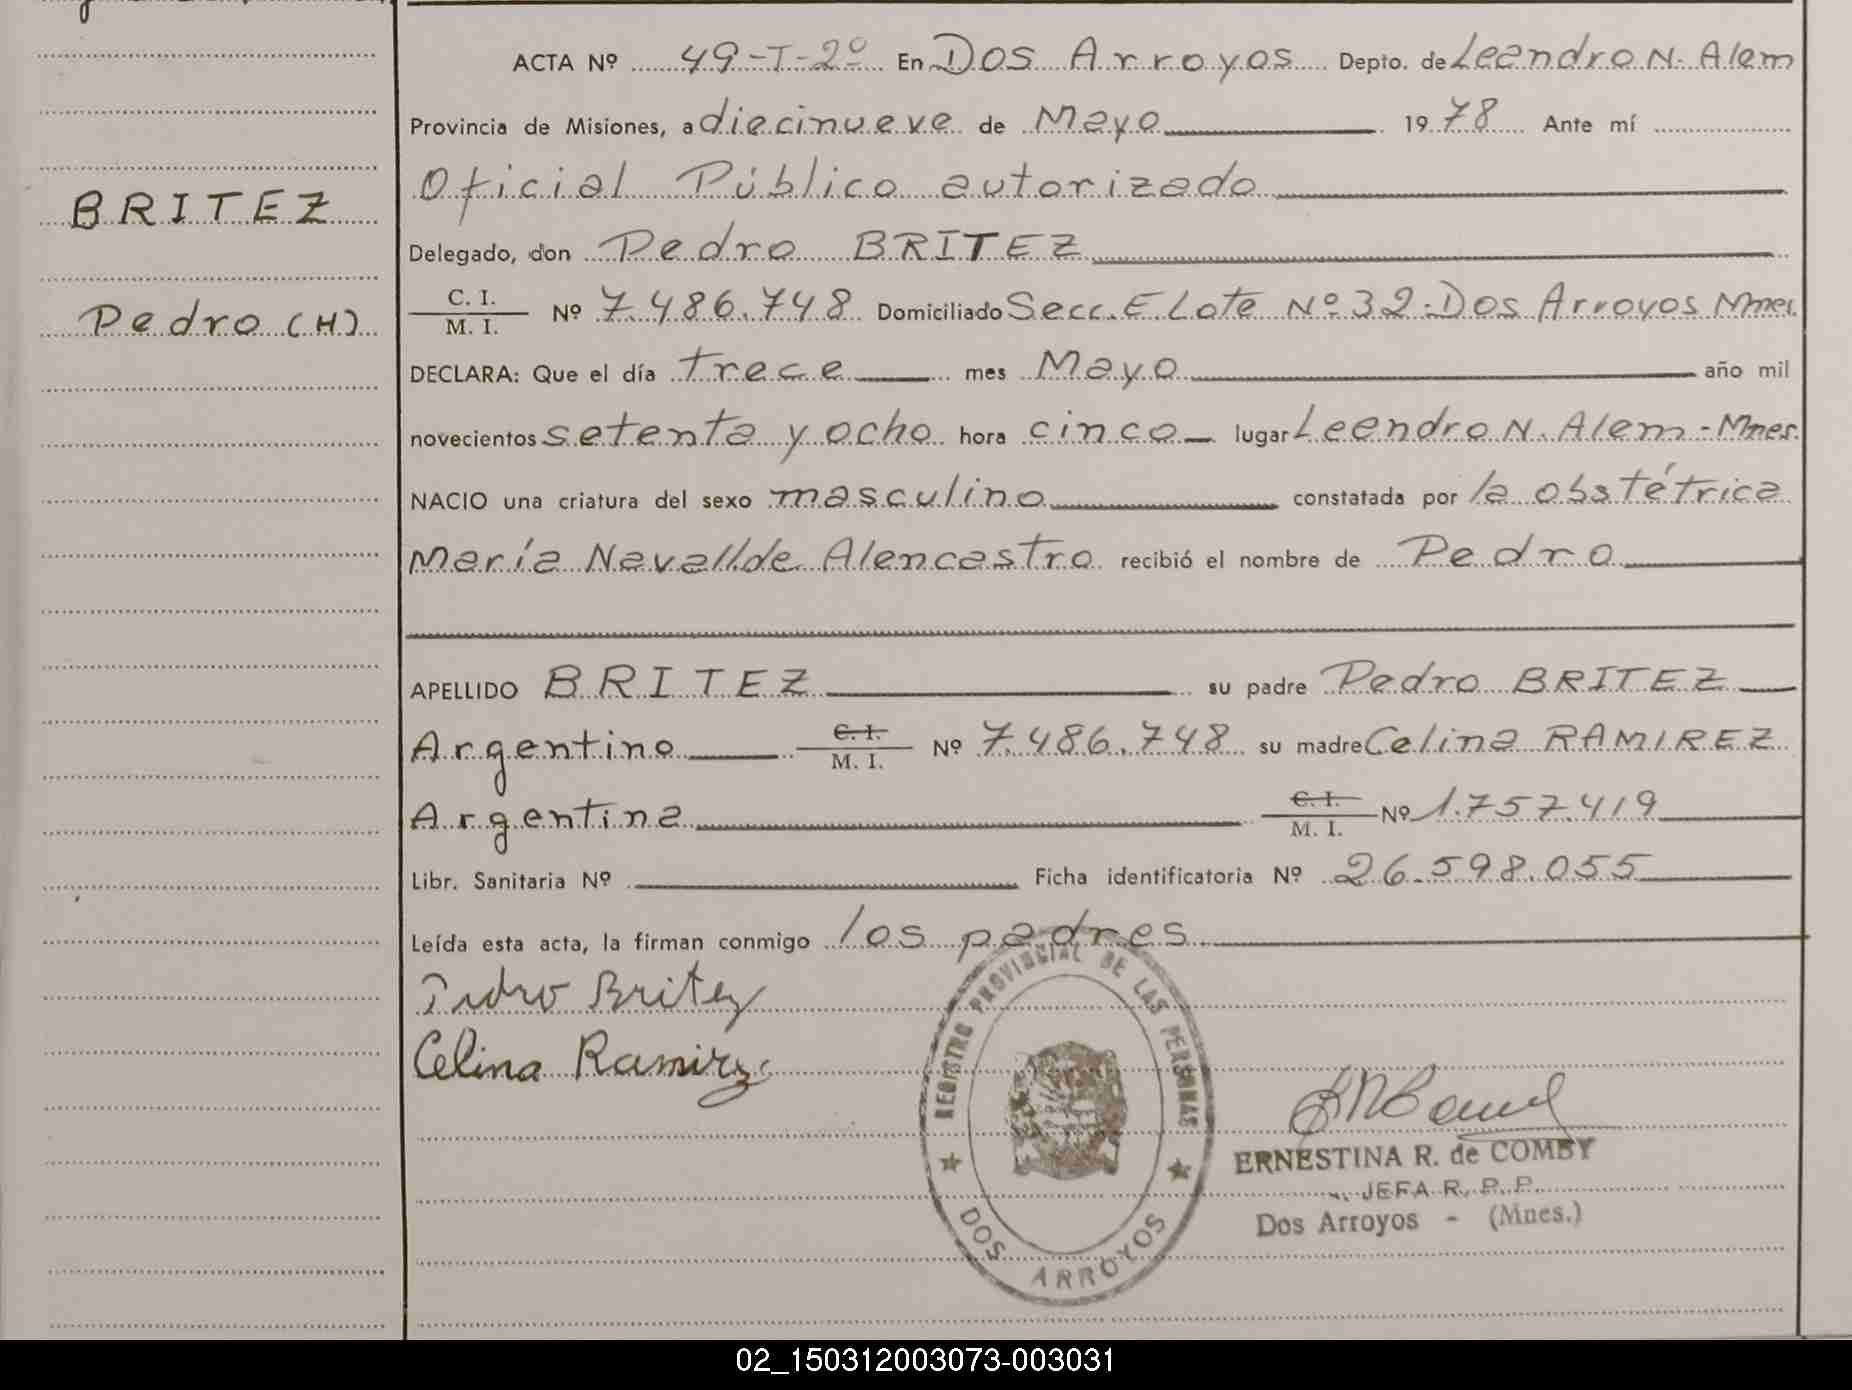 ACTA Nº 49-T-2º En Dos Arroyos Depto. de Leandro N. Alem
Provincia de Misiones, a diecinueve de Mayo 1978 Ante mí
Oficial Público autorizado
BRITEZ
Delegado, don Pedro BRITEZ
Pedro (H)
C. I.
M. I.
Nº 7.486.748 Domiciliado Secc. E Lote Nº 32-Dos Arroyos Mnes.
DECLARA: Que el día trece mes Mayo año mil
novecientos setenta y ocho hora cinco lugar Leandro N. Alem-Mnes.
NACIO una criatura del sexo masculino constatada por la obstétrica
María Navall de Alencastro recibió el nombre de Pedro
APELLIDO BRITEZ su padre Pedro BRITEZ
Argentino C. I. M. I. Nº 7.486.748 su madre Celina RAMIREZ
Argentina C. I. M. I. Nº 1.757.419
Libr. Sanitaria Nº Ficha identificatoria Nº 26.598.055
Leída esta acta, la firman conmigo los padres
Pedro Britez
Celina Ramirez
REGISTRO PROVINCIAL DE LAS PERSONAS
DOS ARROYOS
ERNESTINA R. de COMBY
JEFA R. P. P.
Dos Arroyos - (Mnes.)
02_150312003073-003031